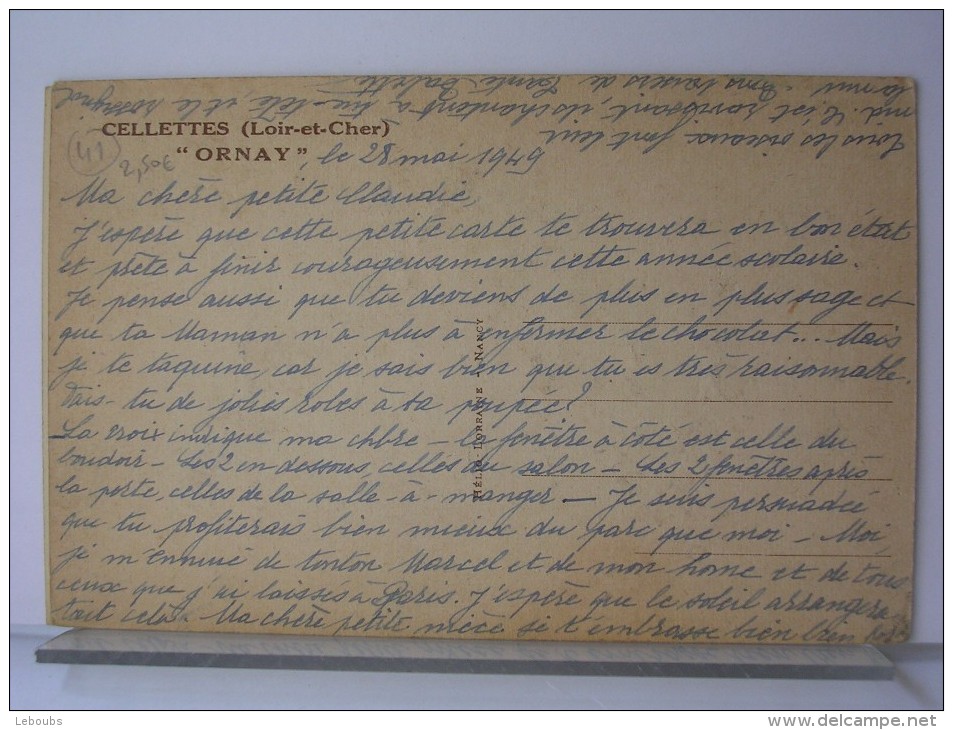 CELLETTES (Loir-et-Cher)
"ORNAY", le 28 mai 1949
41
2,50€
Ma chère petite Claudie,
J'espère que cette petite carte te trouvera en bon état
et prête à finir courageusement cette année scolaire.
Je pense aussi que tu deviens de plus en plus sage et
que ta Maman n'a plus à enfermer le chocolat... Mais
je te taquine, car je sais bien que tu es très raisonnable.
Fais-tu de jolies robes à ta poupée?
La croix indique ma chbre - la fenêtre à côté est celle du
boudoir - Les 2 en dessous, celles du salon - Les 2 fenêtres après
la porte, celles de la salle-à-manger - Je suis persuadée
que tu profiterais bien mieux du parc que moi - Moi,
je m'ennuie de tonton Marcel et de mon home et de tous
ceux que j'ai laissés à Paris. J'espère que le soleil arrangera
tout cela. Ma chère petite nièce, je t'embrasse bien bien
Tous les oiseaux font leur
nid. C'est ravissant, ils chantent à tue-tête, et le rossignol
Gros baisers de
HÉLIO-LORRAINE - NANCY
Leboubs
www.delcampe.net